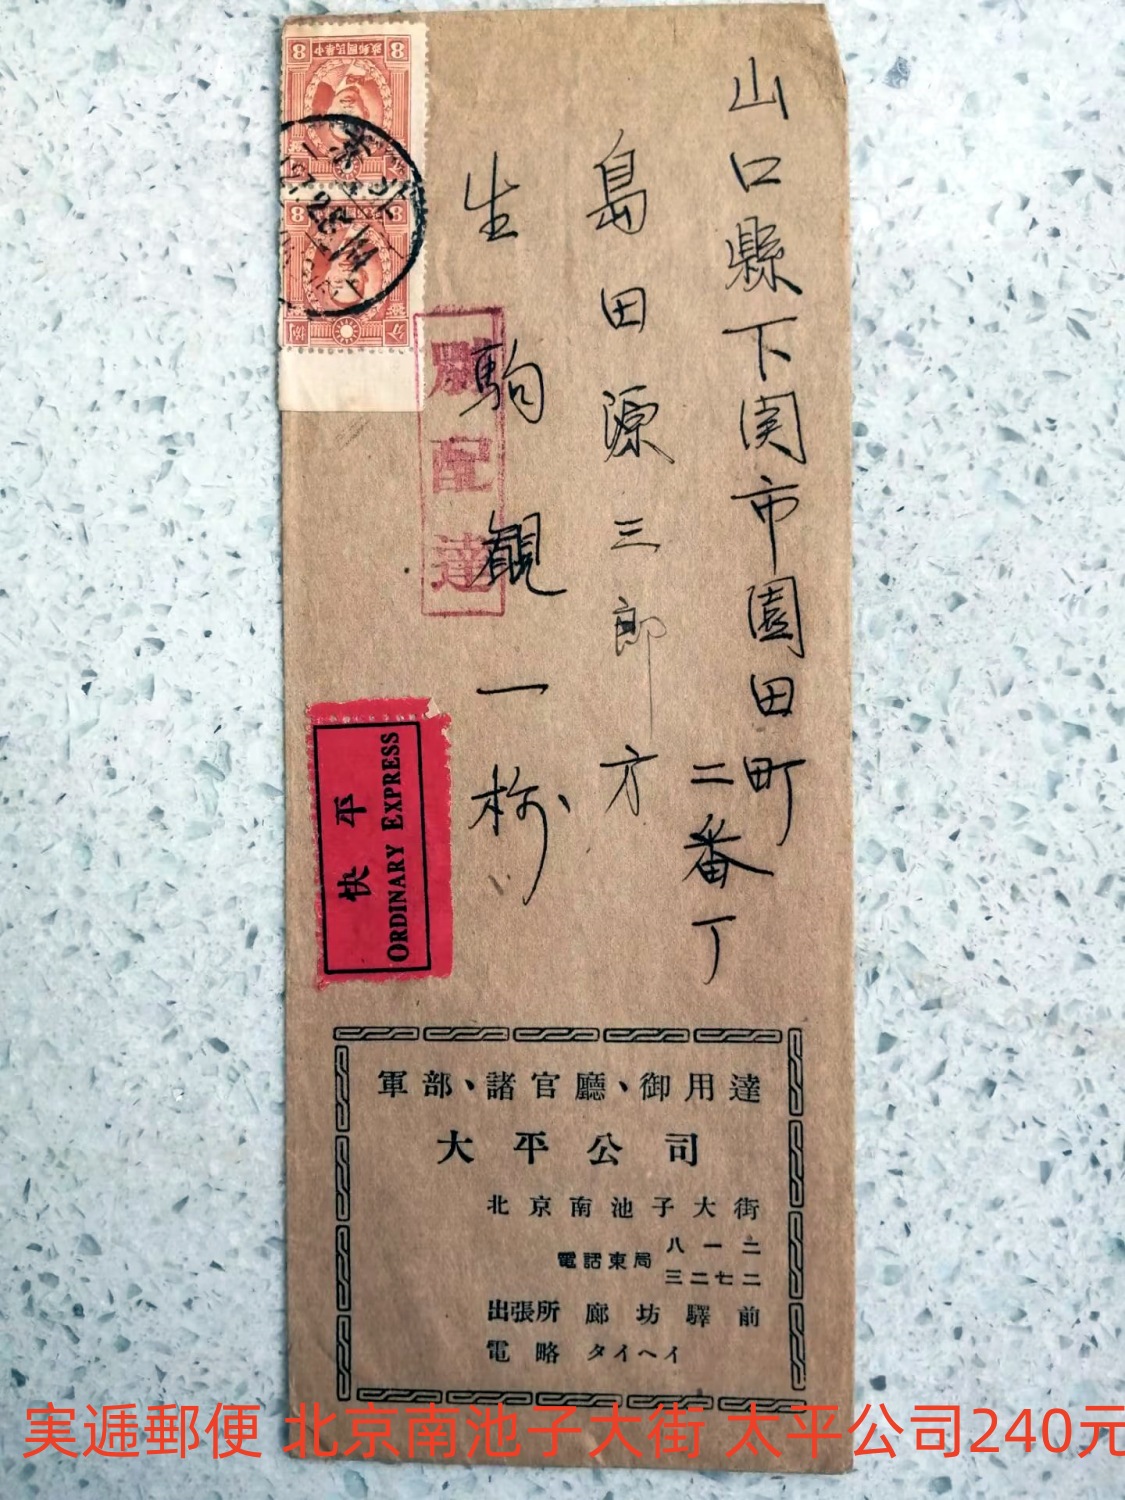 山口縣下関市園田町
二番丁
島田源三郎方
生駒観一様
別配達
快平
ORDINARY EXPRESS
中華民國郵政
8
8
8
分
捌
北京
軍部、諸官廳、御用達
大平公司
北京南池子大街
電話東局 八一二
三二七二
出張所 廊坊驛前
電略 タイヘイ
実逓郵便 北京南池子大街 太平公司240元